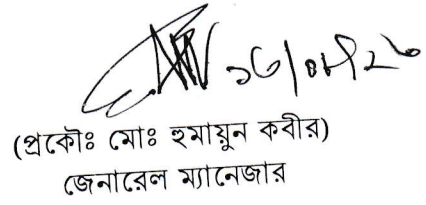 (প্রকৌঃ মোঃ হুমায়ুন কবীর)
জেনারেল ম্যানেজার